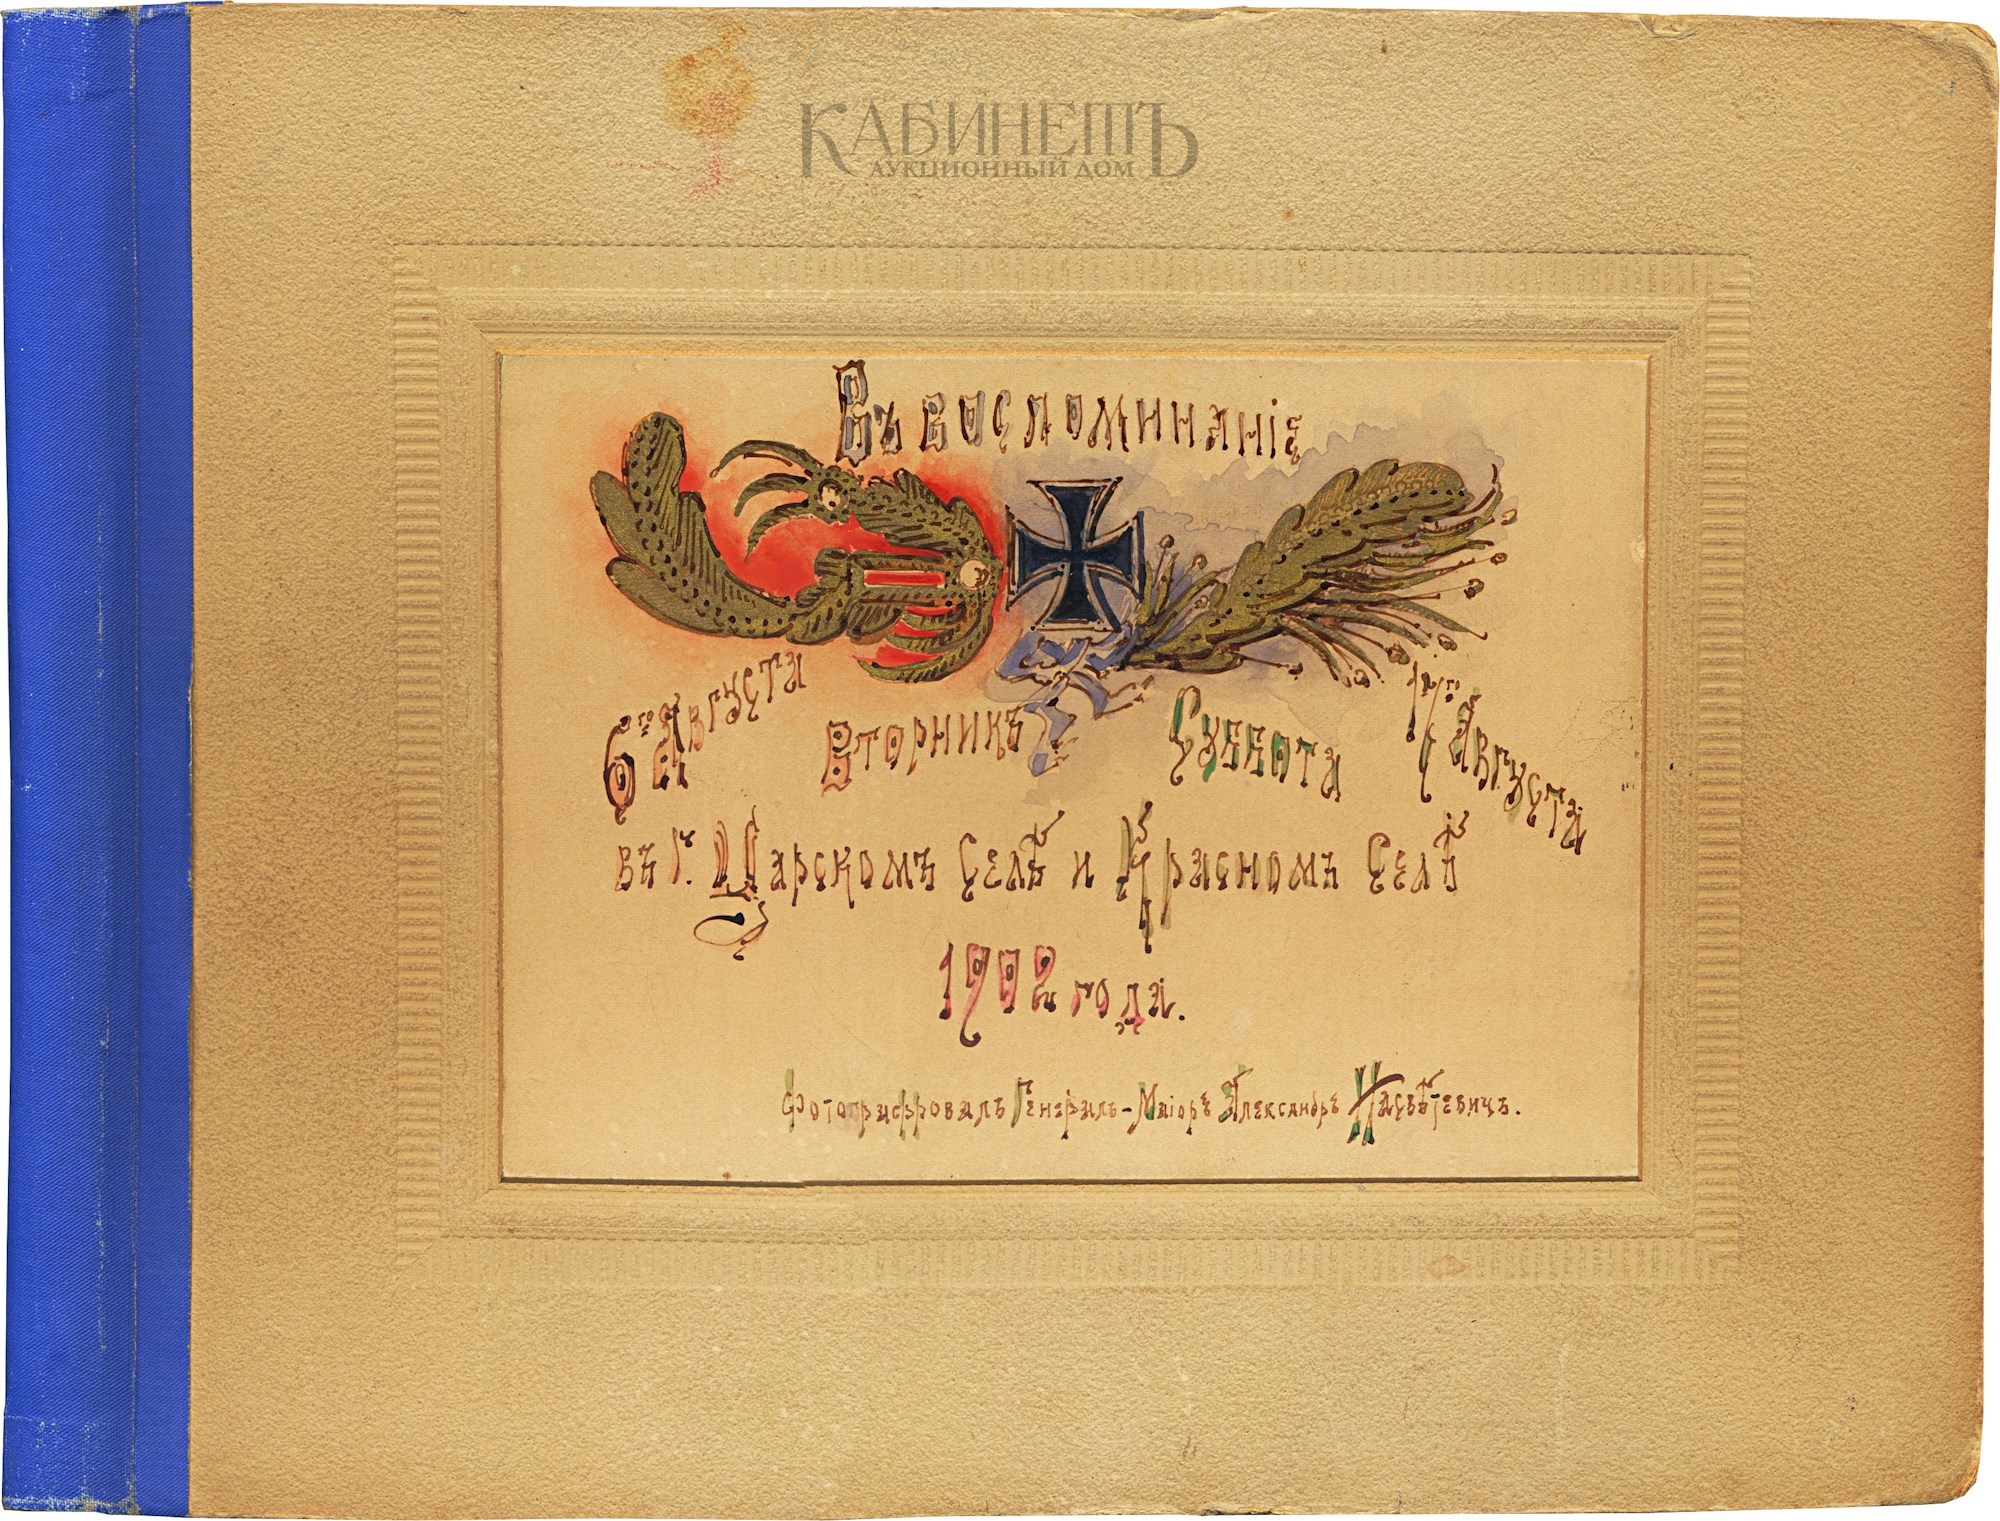 КАБИНЕТЪ
АУКЦИОННЫЙ ДОМ
Въ воспоминаніе
6го Августа Вторникъ Суббота 17го Августа
въ г. Царскомъ Селѣ и Красномъ Селѣ
1902 года.
Фотографировалъ Генералъ-Маіоръ Александръ Насвѣтевичъ.